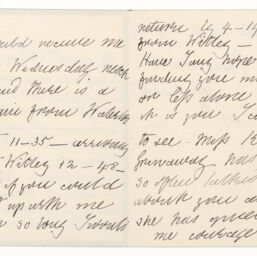 could receive me
Wednesday next
and there is a
from Waterloo
11-35 - arriving
Witley 12 - 43 -
if you could
up with me
so long I would
return by 4-14
from Witley -
Have I any hope
finding you m
or less alone
it is you I ca
to see - Miss
has
so often talked
about you a
she has given
me courage